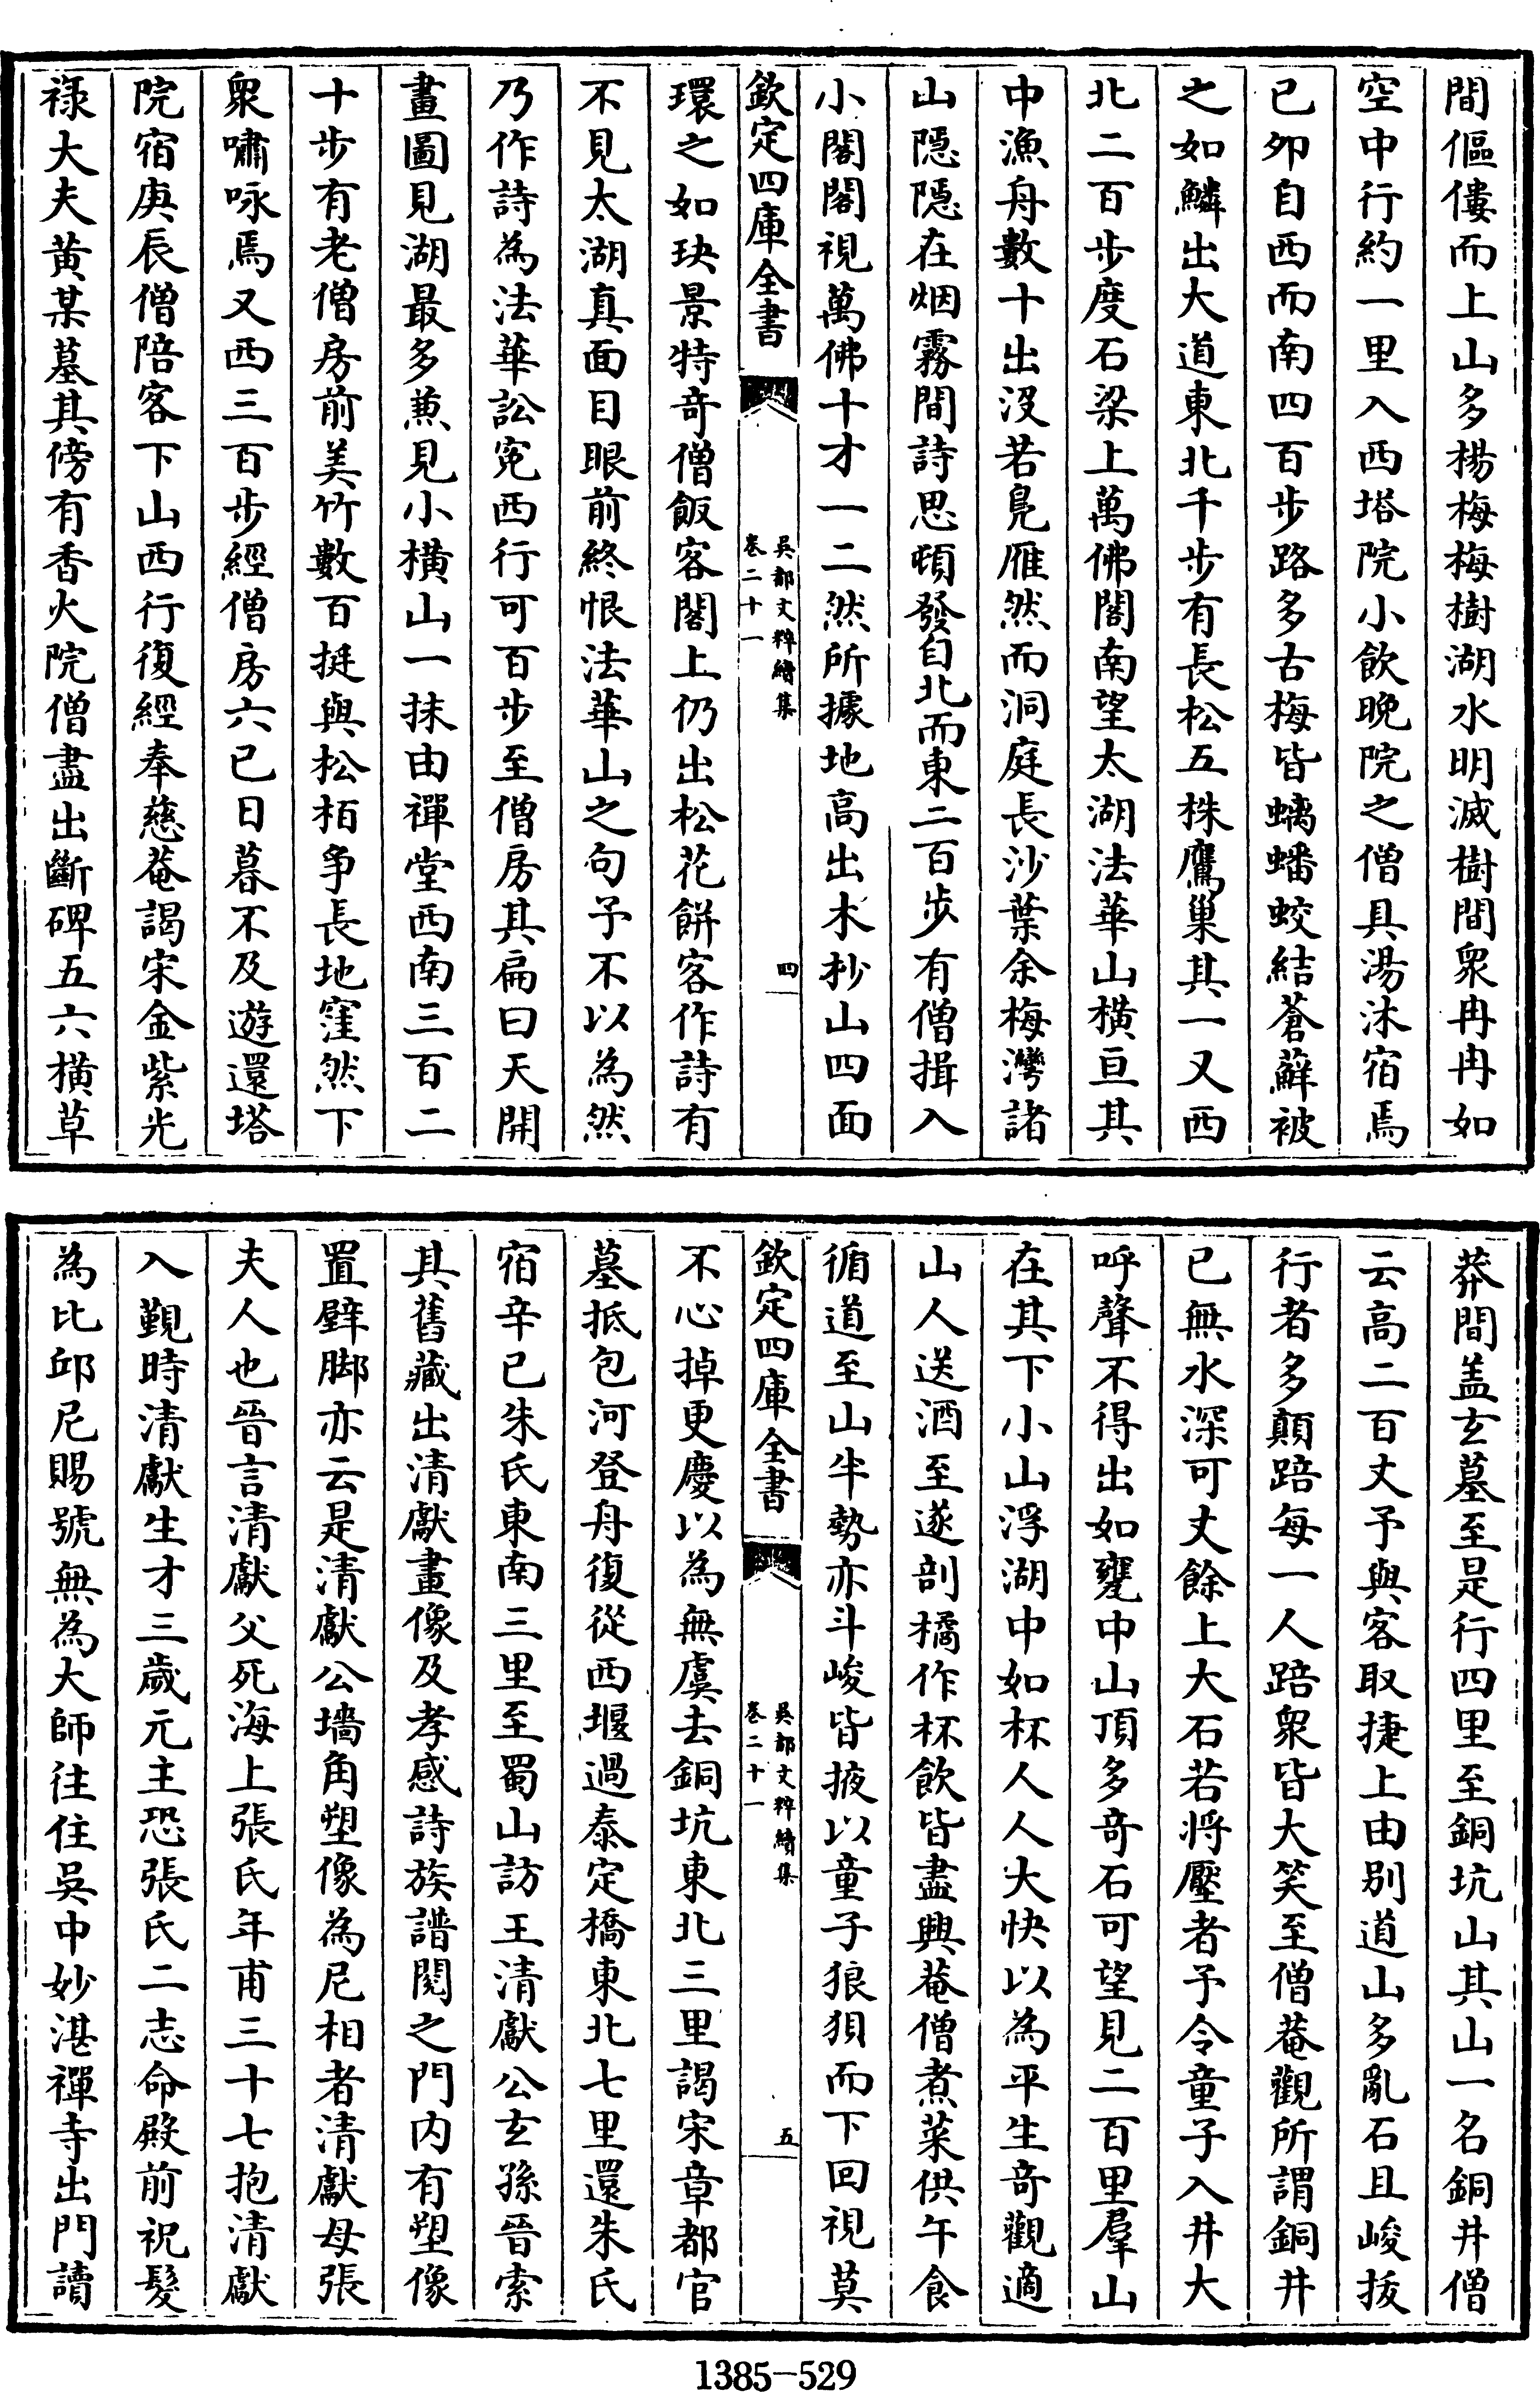 間傴僂而上山多楊梅梅樹湖水明滅樹間衆冉冉如
空中行約一里入西塔院小飲晚院之僧具湯沐宿焉
已夘自西而南四百步路多古梅皆螭蟠蛟結蒼蘚被
之如鱗出大道東北千步有長松五株鷹巢其一又西
北二百步度石梁上萬佛閣南望太湖法華山橫亘其
中漁舟數十出沒若鳧雁然而洞庭長沙葉余梅灣諸
山隱隱在烟霧間詩思頓發自北而東二百步有僧揖入
小閣閣視萬佛十才一二然所據地高出木杪山四面
欽定四庫全書
吳都文粹續集
卷二十一
四
環之如玦景特奇僧飯客閣上仍出松花餅客作詩有
不見太湖真面目眼前終恨法華山之句予不以為然
乃作詩為法華訟寃西行可百步至僧房其扁曰天開
畫圖見湖最多兼見小橫山一抹由禪堂西南三百二
十步有老僧房前美竹數百挺與松栢爭長地窪然下
衆嘯咏焉又西三百步經僧房六已日暮不及遊還塔
院宿庚辰僧陪客下山西行復經奉慈菴謁宋金紫光
祿大夫黃某墓其傍有香火院僧盡出斷碑五六橫草
莽間盖玄墓至是行四里至銅坑山其山一名銅井僧
云高二百丈予與客取捷上由别道山多亂石且峻拔
行者多顛踣每一人踣衆皆大笑至僧菴觀所謂銅井
已無水深可丈餘上大石若将壓者予令童子入井大
呼聲不得出如甕中山頂多奇石可望見二百里羣山
在其下小山浮湖中如杯人人大快以為平生奇觀適
山人送酒至遂剖橘作杯飲皆盡興菴僧煮菜供午食
循道至山半勢亦斗峻皆掖以童子狼狽而下回視莫
欽定四庫全書
吳都文粹續集
卷二十一
五
不心掉更慶以為無虞去銅坑東北三里謁宋章都官
墓抵包河登舟復從西堰過泰定橋東北七里還朱氏
宿辛已朱氏東南三里至蜀山訪王清獻公玄孫晉索
其舊藏出清獻畫像及孝感詩族譜閱之門内有塑像
置壁脚亦云是清獻公墻角塑像為尼相者清獻母張
夫人也晉言清獻父死海上張氏年甫三十七抱清獻
入覲時清獻生才三歲元主恐張氏二志命殿前祝髮
為比邱尼賜號無為大師往住吳中妙湛禪寺出門讀
1385-529